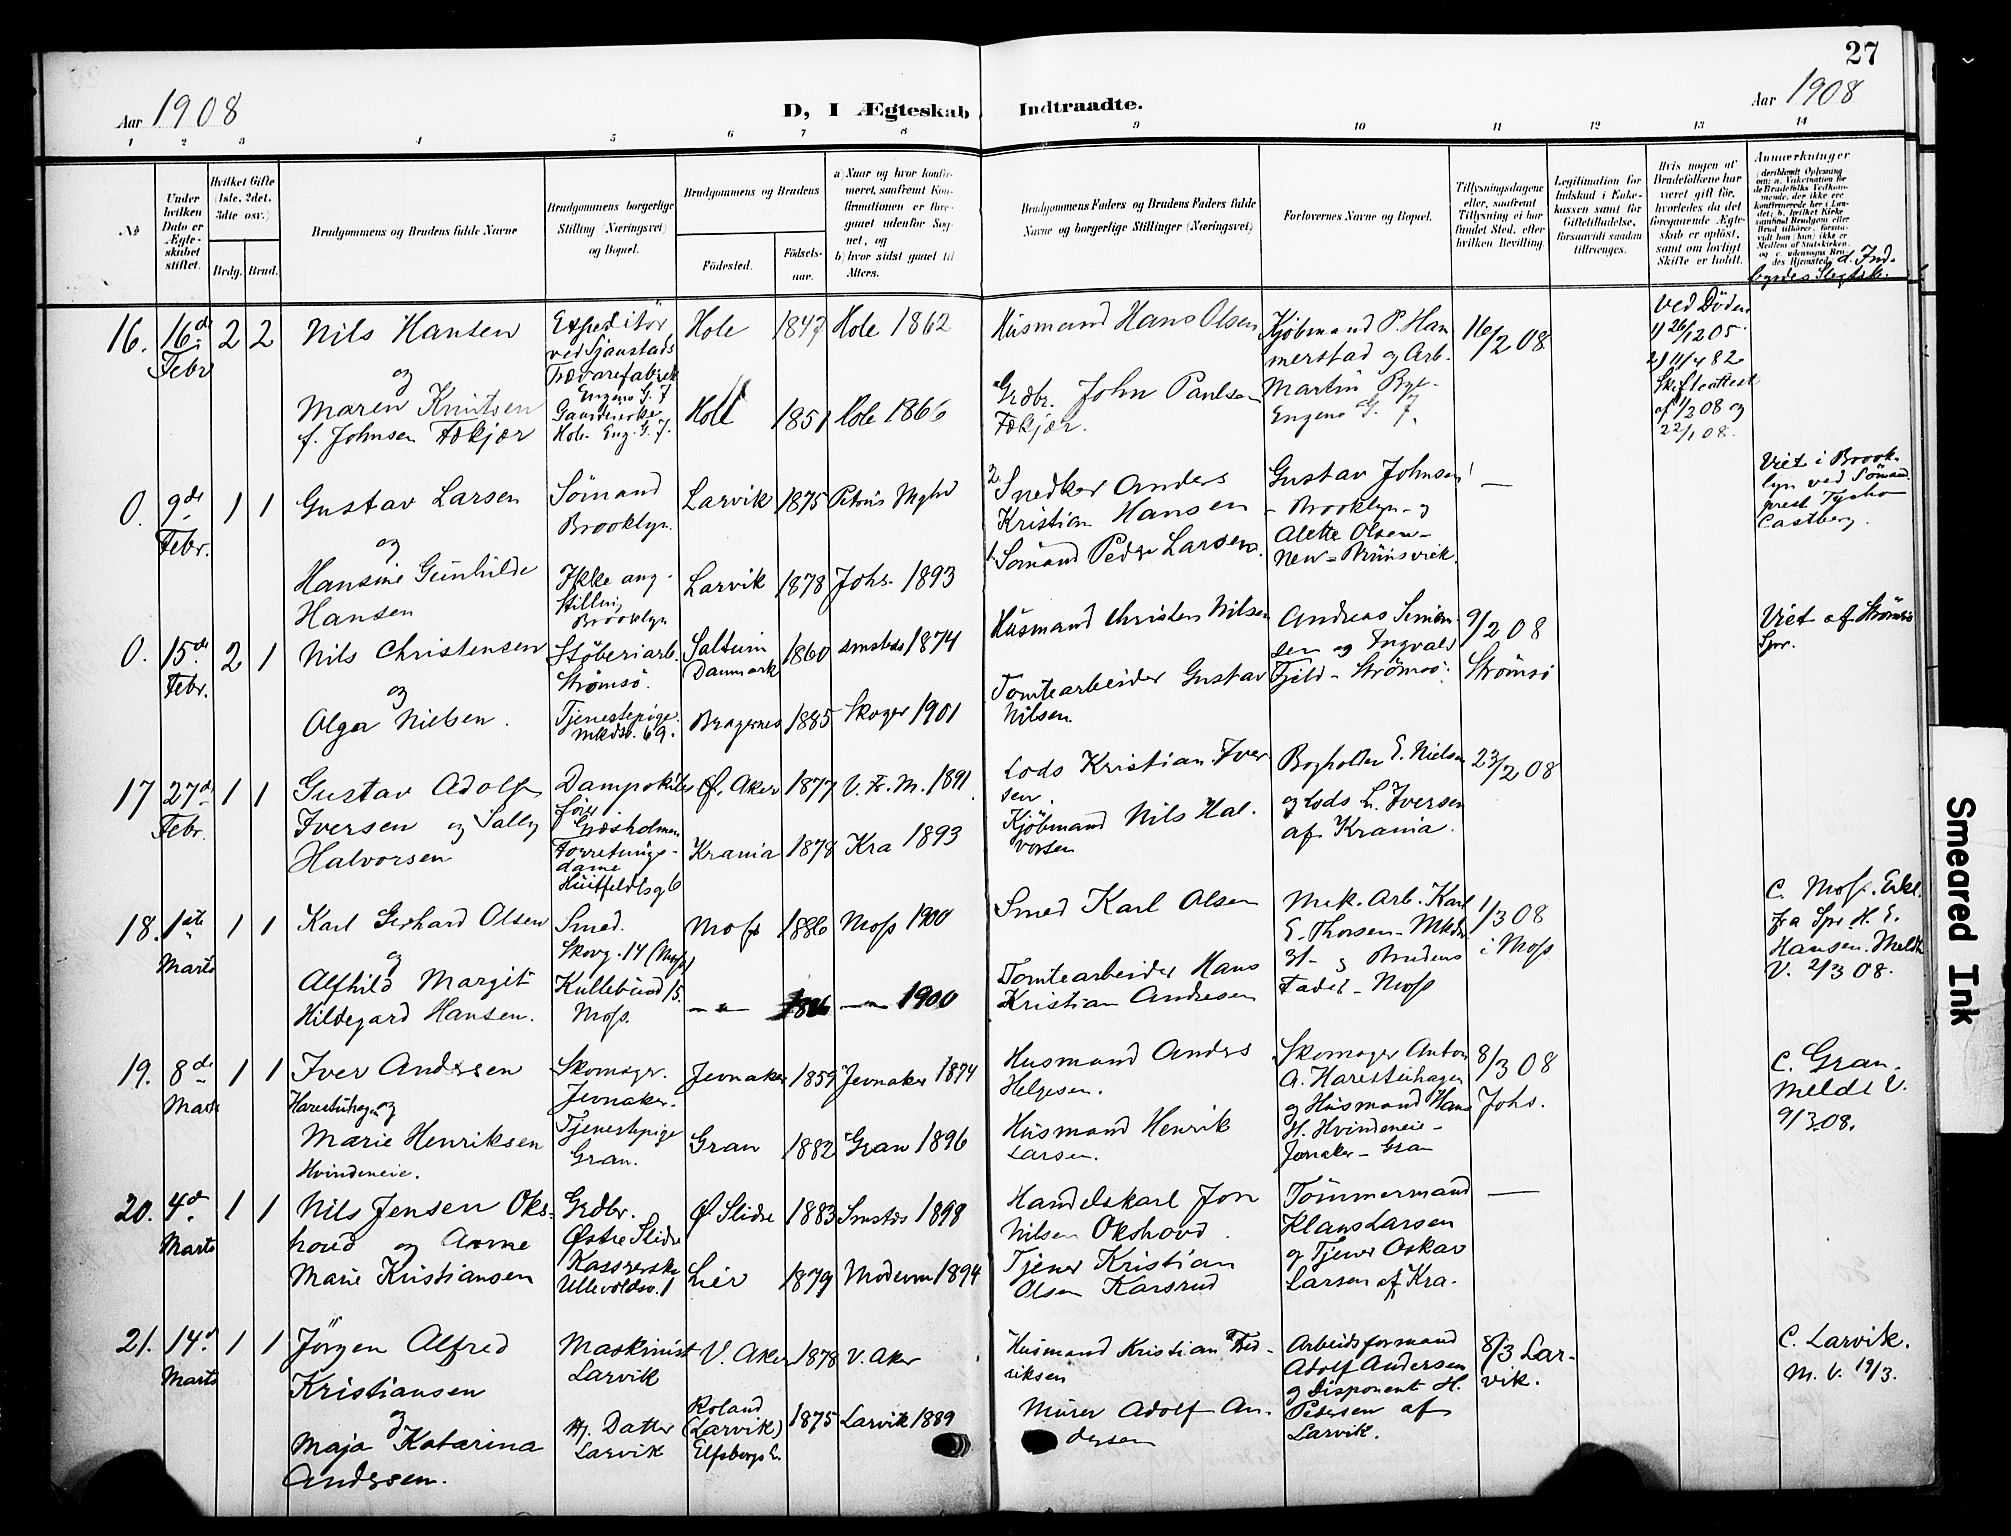 27
Aar 1908
D, I Ægteskab Indtraadte.
Aar 1908
1 2 3 4 5 6 7 8 9 10 11 12 13 14
No
Under hvilken Dato er Ægteskabet stiftet.
Hvilket Gifte (1ste, 2det, 3die osv.)
Brdg. Brud.
Brudgommens og Brudens fulde Navne
Brudgommens borgerlige Stilling (Næringsvei) og Bopæl.
Brudgommens og Brudens
Fødested. Fødselsaar.
a) Naar og hvor konfirmeret, saafremt Konfirmationen er foregaaet udenfor Sognet, og
b) hvor sidst gaaet til Alters.
Brudgommens Faders og Brudens Faders fulde Navne og borgerlige Stillinger (Næringsvei)
Forlovernes Navne og Bopæl.
Tillysningsdagene eller, saafremt Tillysning ei har fundet Sted, efter hvilken Bevilling.
Legitimation for Indskud i Enkekassen samt for Giftetilladelse, forsaavidt saadan tiltrænges.
Hvis nogen af Brudefolkene har været gift før, hvorledes da det foregaaende Ægteskab er opløst, samt om lovligt Skifte er holdt.
Anmærkninger
16. 16de Febr 2 2
Nils Hansen
og
Maren Knutsen
f. Johnsen Fækjær
Expeditör
ved Sjaustads
Trævarefabrik
Engene G. 7
Hole Eng. G. 7.
Hole 1847 Hole 1862
Hole 1851 Hole 1866
Husmand Hans Olsen
Grdbr. John Paulsen
Fækjær.
Kjöbmand P. Ham
merstad og Arb.
Martin
Engene G. 7.
16/2 08
Ved Döden
1) 26/12 05.
2) 11/4 82
Skifteattest
af 1/2 08 og
22/1 08.
0. 9de Febr. 1 1
Gustav Larsen
og
Hansine Gunhilde
Hansen
Sömand
Brooklyn.
Ikke ang.
Stilling
Brooklyn
Larvik 1875 Petrus Mghd
Larvik 1878 Johs. 1893
2 Snedker Anders
Kristian Hansen
1. Sömand Peder Larsen.
Gustav Johnsen
- Brooklyn - og
Alette Olsen -
New-Brunsvick.
—
Viet i Brook-
lyn ved Sömand
prest Tycho
Castberg.
0. 15de Febr. 2 1
Nils Christensen
og
Olga Nielsen.
Støberiarb.
Strömsö.
Tjenestepige
Mkdsv. 69.
Saltum
Danmark 1860 smsteds 1874
Bragernes 1885 Skoger 1901
Husmand Christen Nilsen
Tomtearbeider Gustav
Nilsen.
Andreas Simon
sen og Ingvald
Fjeld - Strömsö.
9/2 08
Strömsö
Viet af Strömsö
Spr.
17 27de Febr. 1 1
Gustav Adolf
Iversen og Sally
Halvorsen
Græsholmen
Forretnings-
dame
Huitfeldtsg 6
Ø. Aker 1877 V. F. M. 1891
Krania 1878 Kra 1893
Lods Kristian Iver
sen.
Kjöbmand Nils Hal-
vorsen
Bogholder E. Nielsen
og Lods L. Iversen
af Krania.
23/2 08
18. 1ste Marts 1 1
Karl Gerhard Olsen
og
Alfhild Margit
Hildegard Hansen.
Smed.
Skovg. 14 (Moss)
Kullebund 15.
Moss.
Moss 1886 Moss 1900
— " — 1886 — " — 1900
Smed Karl Olsen
Tomtearbeider Hans
Kristian Andresen
Mek. Arb. Karl
E. Thorsen - Mkdsv
31 - og Brudens
Fader - Moss
1/3 08
i Moss
C. Moss. Erkl.
fra Spr H. E.
Hansen. Meldt
V. 2/3 08.
19. 8de Marts 1 1
Iver Andersen
Harestuhagen og
Marie Henriksen
Hvindeneie.
Skomager.
Jevnaker.
Tjenestepige
Gran.
Jevnaker 1859 Jevnaker 1874
Gran 1882 Gran 1896
Husmand Anders
Helgesen.
Husmand Henrik
Larsen.
Skomager Anton
A. Harestuhagen
og Husmand Hans
H. Hvindeneie -
Jevnaker - Gran
8/3 08
Johs.
C. Gran.
Meldt V.
9/3.08.
20. 4de Marts 1 1
Nils Jensen Oks-
hovd og Anne
Marie Kristiansen
Grdbr.
Østre Slidre
Kassererske
Ullevoldsv. 1
Ø Slidre 1883 Smsteds 1898
Lier 1879 Modum 1894
Handelskarl Jon
Nilsen Okshovd.
Tjener Kristian
Olsen Karsrud
Tömmermand
Klaus Larsen
og Tjener Oskar
Larsen af Kra.
—
21. 14de Marts 1 1
Jörgen Alfred
Kristiansen
og
Maja Katarina
Andersen.
Maskinist
Larvik
Hj. Datter
Larvik
V. Aker 1878 V. Aker
Roland
(Larvik)
Elfsborgs L. 1875 Larvik 1889
Husmand Kristian Fred-
riksen
Murer Adolf An-
dersen
Arbeidsformand
Adolf Andersen
og Disponent H.
Pedersen af
Larvik.
8/3 Lar-
vik.
C. Larvik.
M. V. 19/3.
Smeared Ink